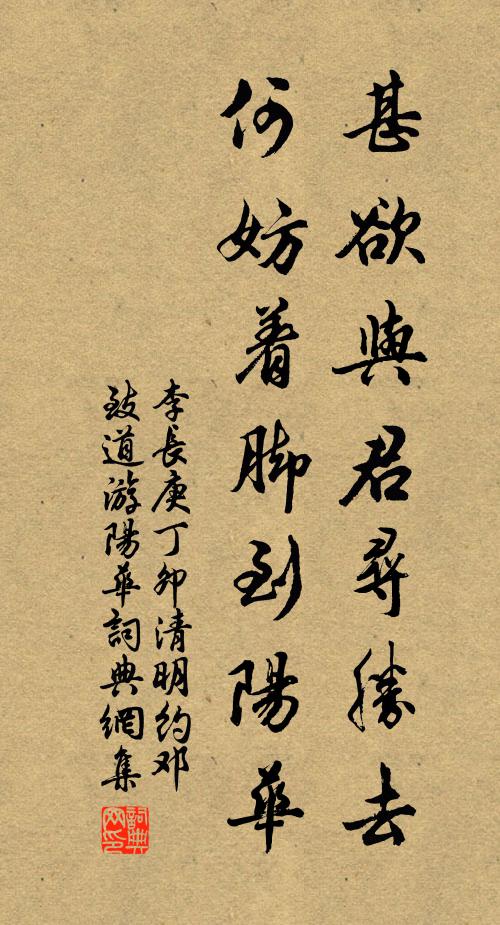 甚欲與君尋勝去
何妨着脚到陽華
李長庚丁卯清明約邓
致道游陽華詞典網集
詞典
网印